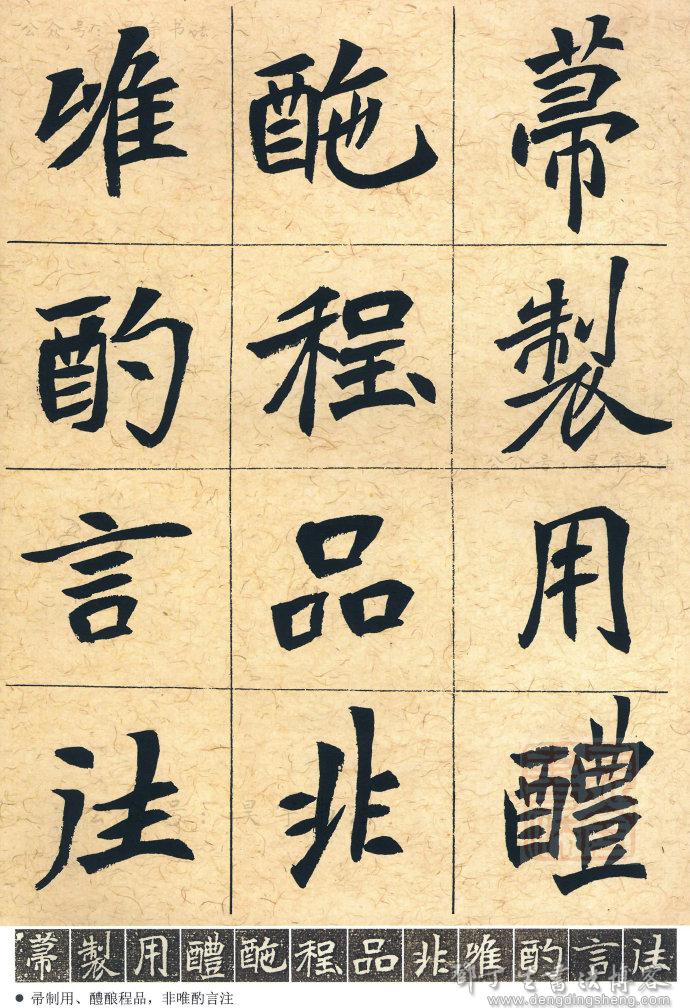 帚製用醴
酏程品非
唯酌言注
帚製用醴酏程品非唯酌言注
● 帚制用、醴酿程品，非唯酌言注
邓丁生书法博客
www.dengdingsheng.com